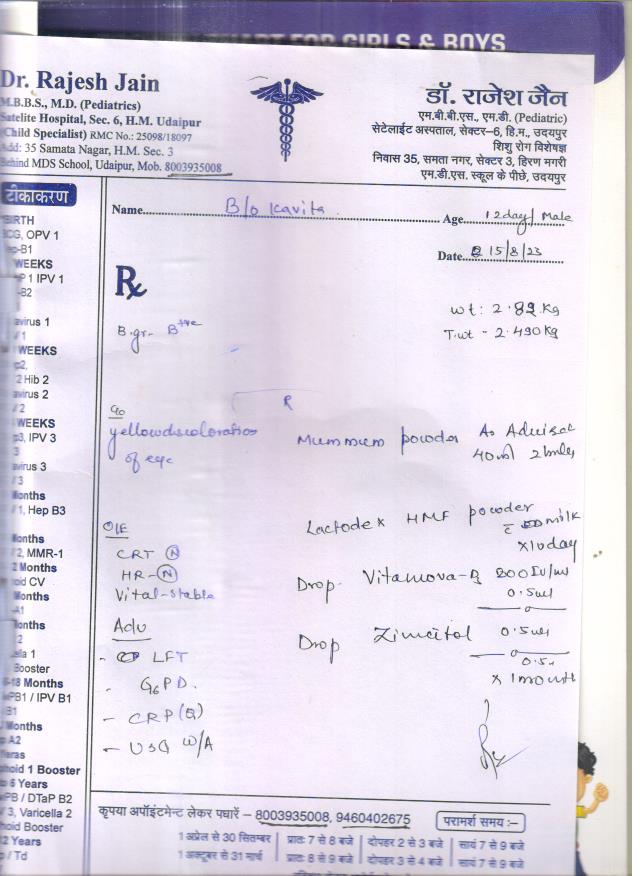 CHART FOR GIRLS & BOYS
Dr. Rajesh Jain
M.B.B.S., M.D. (Pediatrics)
Satelite Hospital, Sec. 6, H.M. Udaipur
(Child Specialist) RMC No.: 25098/18097
Add: 35 Samata Nagar, H.M. Sec. 3
Behind MDS School, Udaipur, Mob. 8003935008
डॉ. राजेश जैन
एम.बी.बी.एस., एम.डी. (Pediatric)
सेटेलाईट अस्पताल, सेक्टर–6, हि.म., उदयपुर
शिशु रोग विशेषज्ञ
निवास 35, समता नगर, सेक्टर 3, हिरण मगरी
एम.डी.एस. स्कूल के पीछे, उदयपुर
टीकाकरण
BIRTH
BCG, OPV 1
Hep-B1
WEEKS
P 1 IPV 1
-B2
avirus 1
/ 1
WEEKS
2 Hib 2
avirus 2
/ 2
WEEKS
p3, IPV 3
3
avirus 3
/ 3
Months
/ 1, Hep B3
Months
/ 2, MMR-1
2 Months
oid CV
Months
-A1
Months
2
ella 1
Booster
6-18 Months
wPB1 / IPV B1
B1
Months
A2
Years
phoid 1 Booster
5 Years
wPB / DTaP B2
V 3, Varicella 2
hoid Booster
2 Years
/ Td
Name B/o Kavita Age 12day/Male
Date 15/8/23
Rx
wt: 2.89 kg
B.gr- B+ve T.wt - 2.490 kg
R
C/o
yellow discoloration
of eye
Mummum powder As Advised
40ml 2 hrly
Lactodex HMF powder
c̄ 50 milk
x 10 day
O/E
CRT (N)
HR- (N)
Vital-stable
Drop Vitanova-D 800 IU/ml
0.5ml
Drop Zincitol 0.5ml
x 1 month
Adv
- LFT
- G6PD.
- CRP (Q)
- USG W/A
कृपया अपॉइंटमेण्ट लेकर पधारें – 8003935008, 9460402675
परामर्श समय :–
1 अप्रेल से 30 सितम्बर प्रातः 7 से 8 बजे दोपहर 2 से 3 बजे सायं 7 से 9 बजे
1 अक्टूबर से 31 मार्च प्रातः 8 से 9 बजे दोपहर 3 से 4 बजे सायं 7 से 9 बजे